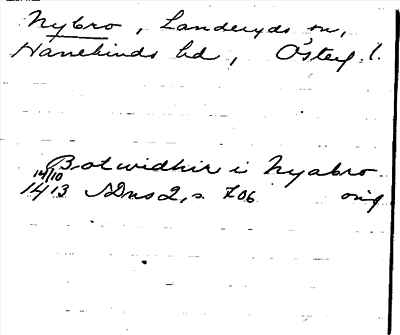 Nybro, Landeryds sn,
Hanekinds hd, Östeg. l.
Botwidhir i Nyabro
14/10
1413 SDns 2, s. 706 orig